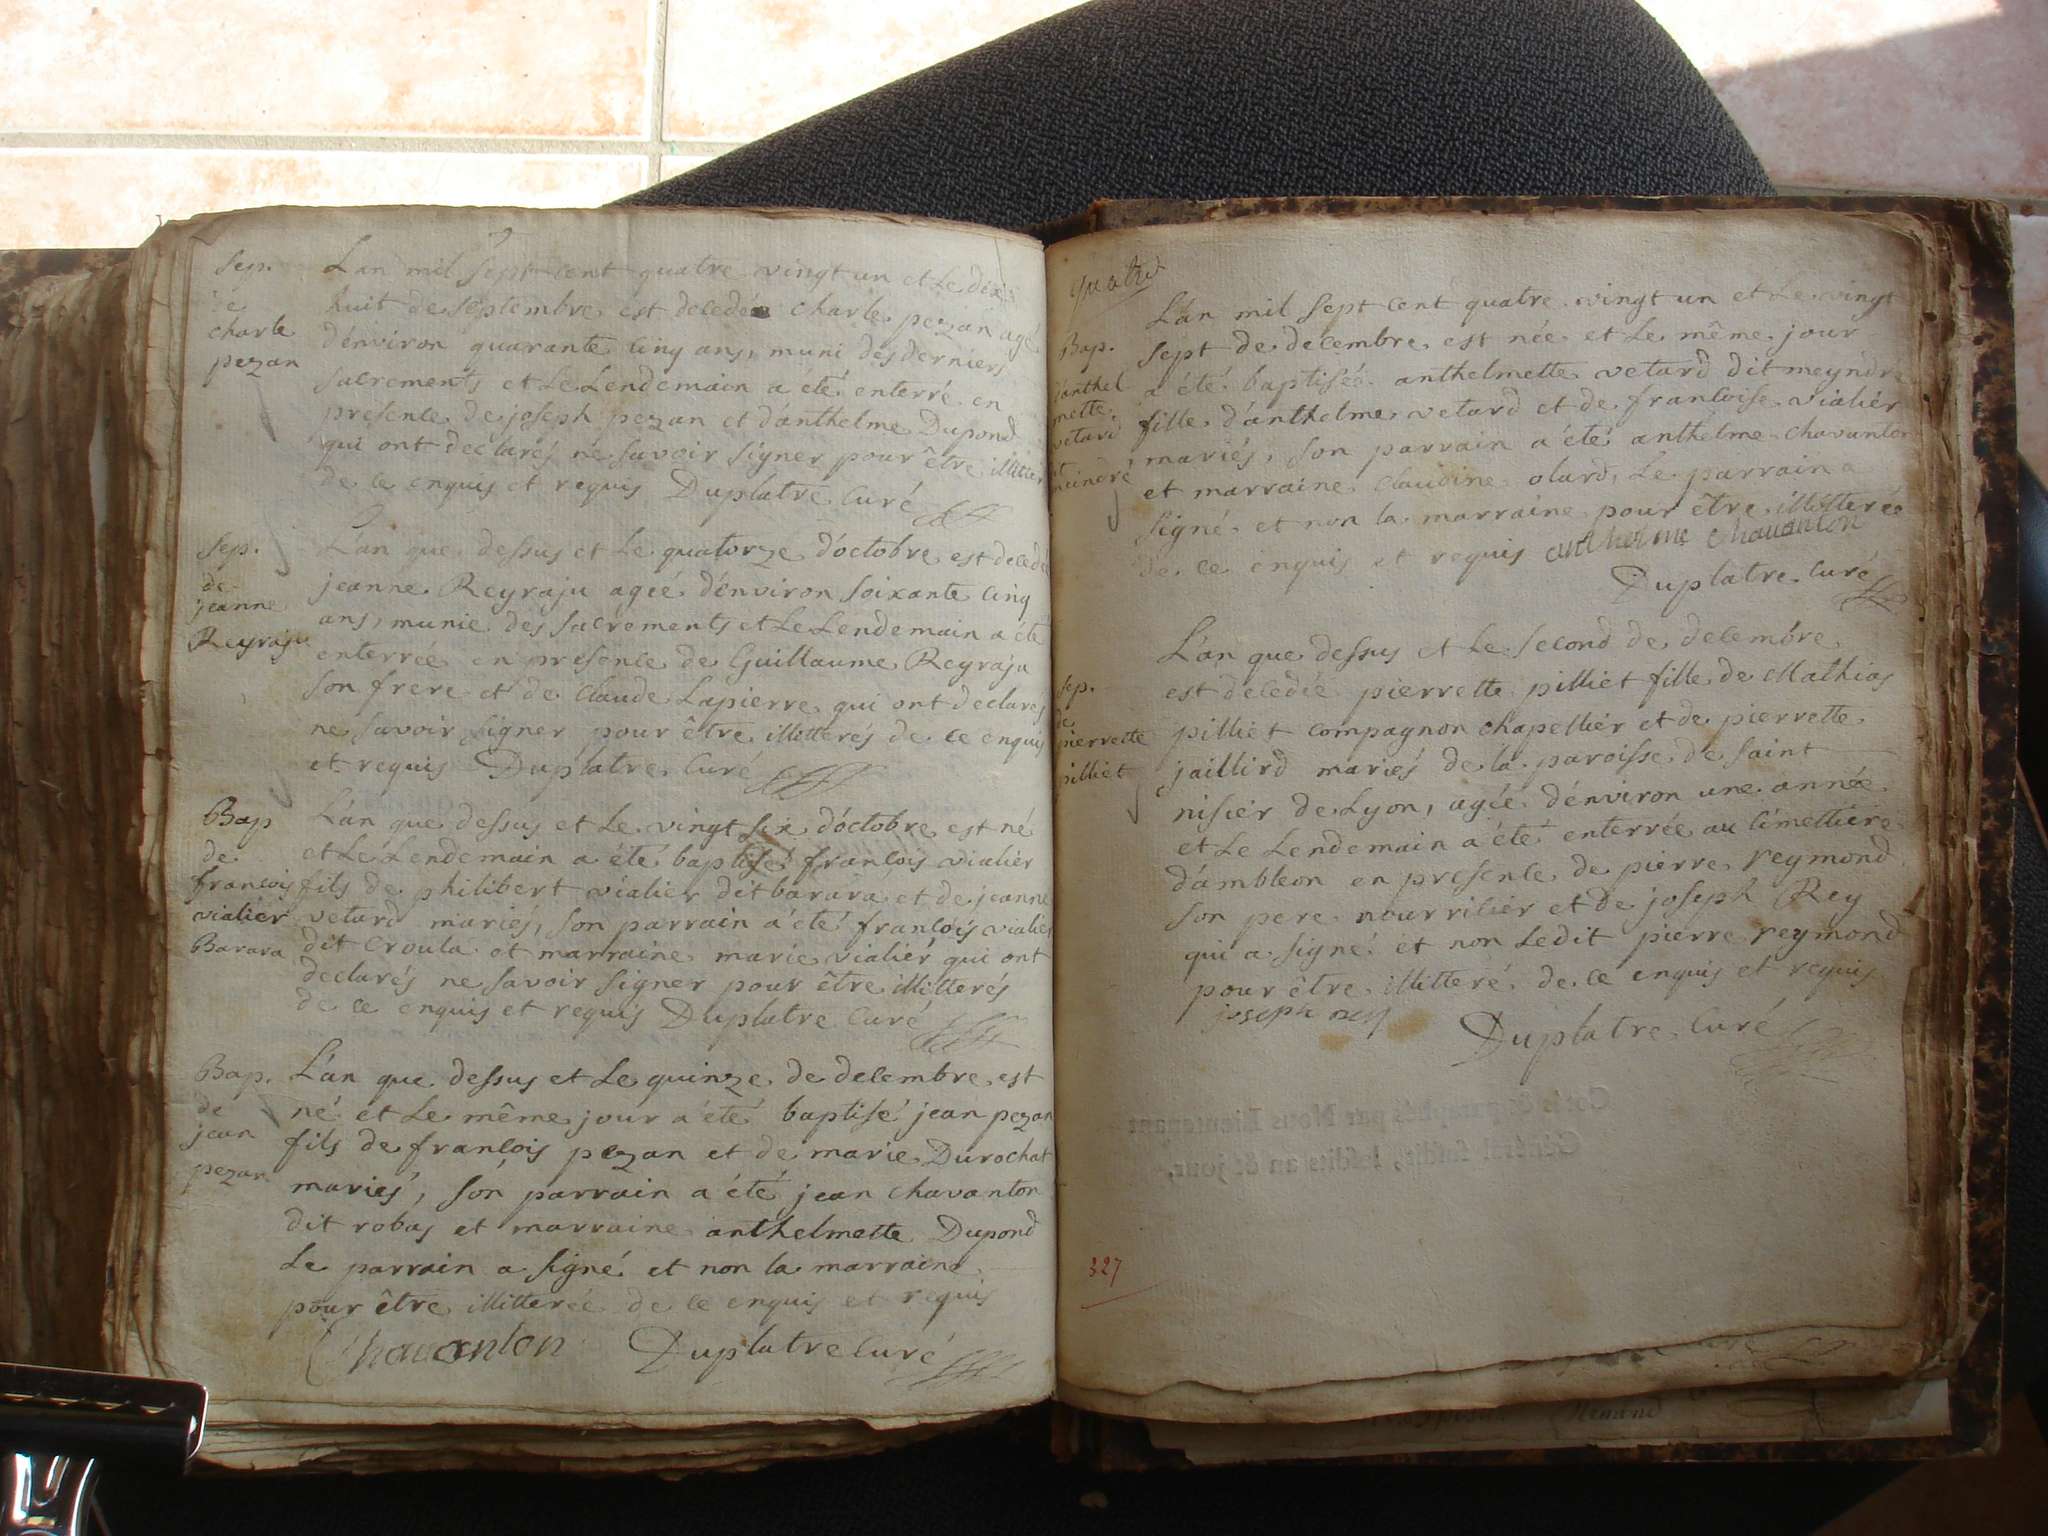 Sep.
de
charle
pezan
L'an mil sept cent quatre vingt un et Le dix
huit de septembre est decedé charle pezan agé
d'énviron quarante cinq ans, muni des derniers
sacrements et Le Lendemain a été enterré en
presence de joseph pezan et d'anthelme Dupond
qui ont declarés ne savoir signer pour être illitter
de ce enquis et requis Duplatre Curé
Sep.
de
jeanne
Reyraju
L'an que dessus et Le quatorze d'octobre est decedé
jeanne Reyraju ageé d'énviron soixante cinq
ans, munie des sacrements et Le Lendemain a été
enterreé en presence de Guillaume Reyraju
son frere et de Claude Lapierre qui ont declarés
ne savoir signer pour être illitterés de ce enquis
et requis Duplatre Curé
Bap
de
francois
vialiér
Barara
L'an que dessus et Le vingt six d'octobre est né
et Le Lendemain a été baptisé francois vialiér
fils de philibert vialiér dit barara et de jeanne
vetard mariés, son parrain a été francois vialiér
dit Croula et marraine marie vialiér qui ont
declarés ne savoir signer pour être illitterés
de ce enquis et requis Duplatre Curé
Bap.
de
jean
pezan
L'an que dessus et Le quinze de decembre est
né et Le même jour a été baptisé jean pezan
fils de francois pezan et de marie Durochat
mariés, son parrain a été jean chavanton
dit robas et marraine anthelmette Dupond
Le parrain a signé et non la marraine
pour être illitteréé de ce enquis et requis
Chavanton Duplatre Curé
quatre
Bap.
d'anthel
mette
vetard
meindre
L'an mil sept cent quatre vingt un et Le vingt
sept de decembre est née et Le même jour
a été baptisée anthelmette vetard dit meyndre
fille d'anthelme vetard et de francoise vialiér
mariés, son parrain a été anthelme chavanton
et marraine Claudine olard, Le parrain a
signé et non la marraine pour être illitterée
de ce enquis et requis anthelme chavanton
Duplatre Curé
Sep.
de
pierrette
pilliet
L'an que dessus et Le second de decembre
est decedée pierrette pilliet fille de Mathias
pilliet compagnon chapelliér et de pierrette
jaillird mariés de la paroisse de saint
nisiér de Lyon, ageé d'énviron une année
et Le Lendemain a été enterrée au Cimettiere
d'ambleon en presence de pierre reymond
son pere nourriciér et de joseph Rey
qui a signé et non Ledit pierre reymond
pour être illitteré de ce enquis et requis
joseph rey
Duplatre Curé
327